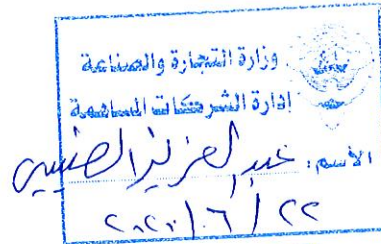 وزارة التجارة والصناعة
إدارة الشركات المساهمة
الاسم: عبدالعزيز
٢٠٢٠/٦/٢٢